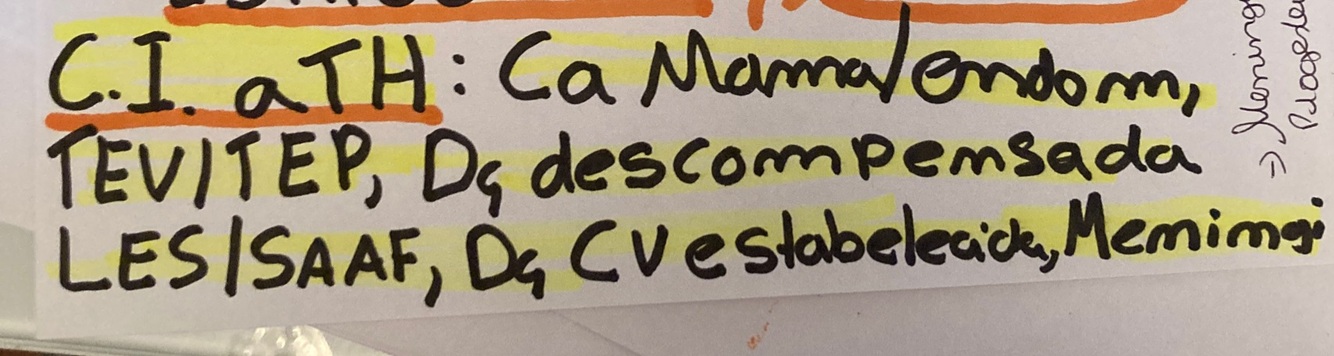 C.I. a TH: Ca Mama/endom,
TEV/TEP, Dç descompensada
LES/SAAF, Dç CV estabelecida, Meningi
=> Mening